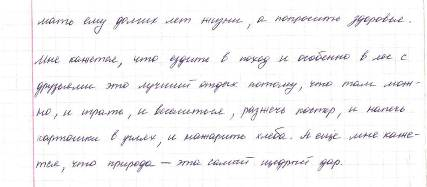 мать ему долгих лет жизни, а попросить здоровье.
Мне кажется, что ездить в поход и особенно в лес с
друзьями это лучший отдых потому, что там мож-
но, и играть, и веселиться, разжечь костер, и напечь
картошки в углях, и нажарить хлеба. А ещё мне каже-
тся, что природа — это самый щедрый дар.